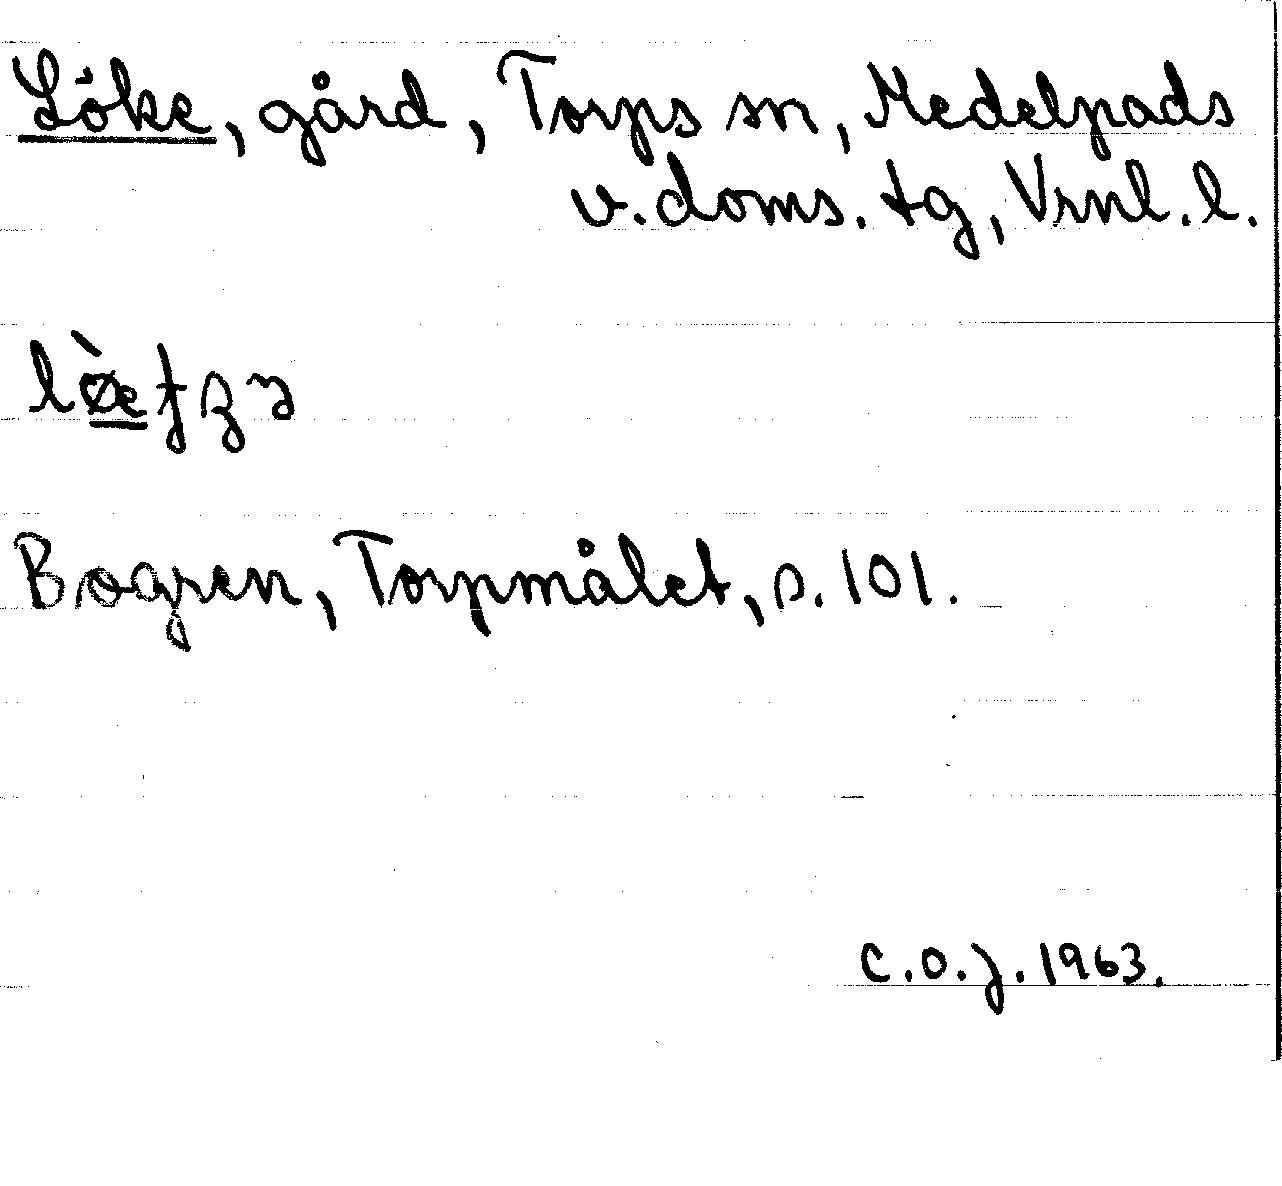 Löke, gård, Torps sn, Medelpads
v. doms. tg, Vrnl. l.
Bogren, Torpmålet, s. 101.
C.O.J. 1963.